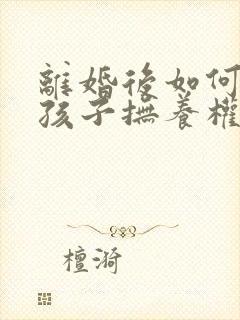 離婚後如何
孩子撫養權
檀漪